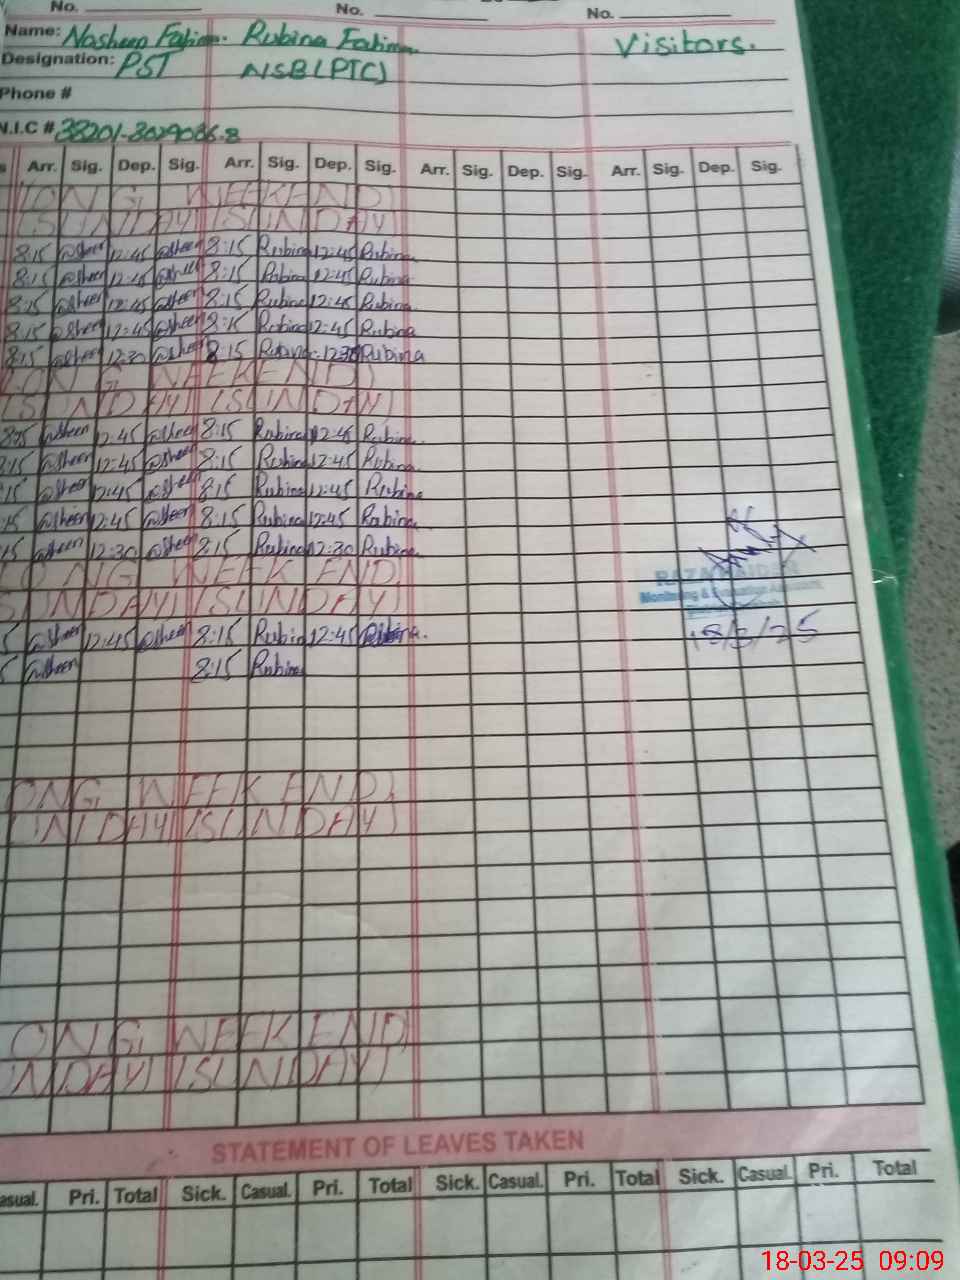 No. No. No.
Name: Nosheen Fatima. Rubina Fatima Visitors.
Designation: PST NSB(PTC)
Phone #
N.I.C # 38201-3029086-8
Arr. Sig. Dep. Sig. Arr. Sig. Dep. Sig. Arr. Sig. Dep. Sig. Arr. Sig. Dep. Sig.
LONG WEEK END
SUNDAY SUNDAY
8:15 @sheen 12:45 @sheen 8:15 Rubina 12:45 Rubina
8:15 @sheen 12:45 @sheen 8:15 Rubina 12:45 Rubina
8:15 @sheen 12:45 @sheen 8:15 Rubina 12:45 Rubina
8:15 @sheen 12:45 @sheen 8:15 Rubina 12:45 Rubina
8:15 @sheen 12:30 @sheen 8:15 Rubina 12:30 Rubina
LONG WEEK END
SUNDAY SUNDAY
8:15 @sheen 12:45 @sheen 8:15 Rubina 12:45 Rubina
:15 @sheen 12:45 @sheen 8:15 Rubina 12:45 Rubina
15 @sheen 12:45 @sheen 8:15 Rubina 12:45 Rubina
:15 @sheen 12:45 @sheen 8:15 Rubina 12:45 Rubina
15 @sheen 12:30 @sheen 8:15 Rubina 12:30 Rubina
LONG WEEK END
SUNDAY SUNDAY
RAZA HAIDER
Monitoring & Evaluation Assistant
5 @sheen 12:45 @sheen 8:15 Rubina 12:45 Rubina.
18/3/25
5 @sheen 8:15 Rubina
ONG WEEK END
UNDAY SUNDAY
ONG WEEK END
UNDAY SUNDAY
STATEMENT OF LEAVES TAKEN
asual. Pri. Total Sick. Casual. Pri. Total Sick. Casual. Pri. Total Sick. Casual. Pri. Total
18-03-25 09:09